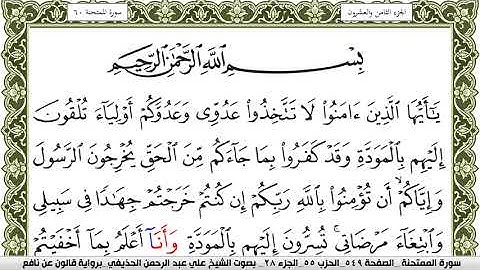 سورة الممتحنة ٦٠
الجزء الثامن والعشرون
بِسْمِ اللَّهِ الرَّحْمَٰنِ الرَّحِيمِ
يَٰأَيُّهَا الَّذِينَ ءَامَنُوا لَا تَتَّخِذُوا عَدُوِّى وَعَدُوَّكُمْ أَوْلِيَآءَ تُلْقُونَ
إِلَيْهِم بِالْمَوَدَّةِ وَقَدْ كَفَرُوا بِمَا جَآءَكُم مِّنَ الْحَقِّ يُخْرِجُونَ الرَّسُولَ
وَإِيَّاكُمْ أَن تُؤْمِنُوا بِاللَّهِ رَبِّكُمْ إِن كُنتُمْ خَرَجْتُمْ جِهَٰدًا فِى سَبِيلِى
وَابْتِغَآءَ مَرْضَاتِى تُسِرُّونَ إِلَيْهِم بِالْمَوَدَّةِ وَأَنَآ أَعْلَمُ بِمَآ أَخْفَيْتُمْ
سورة الممتحنة_ الصفحة ٥٤٩_ الحزب ٥٥_ الجزء ٢٨_ بصوت الشيخ علي عبد الرحمن الحذيفي_ برواية قالون عن نافع